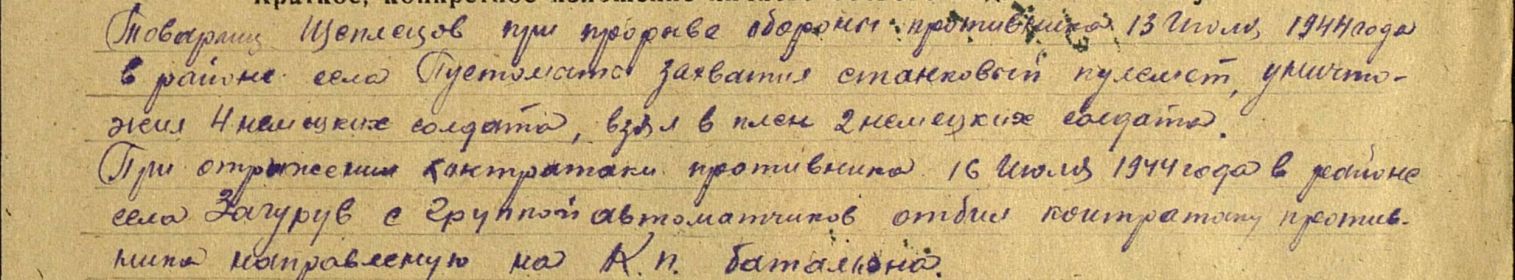 Товарищ Щеплецов при прорыве обороны противника 13 Июля 1944 года
в районе села Пустомата захватил станковый пулемет, уничто-
жил 4 немецких солдата, взял в плен 2 немецких солдата.
При отражении контратаки противника 16 Июля 1944 года в районе
села Загурув с группой автоматчиков отбил контратаку против-
ника направленую на К.п. баталиона.